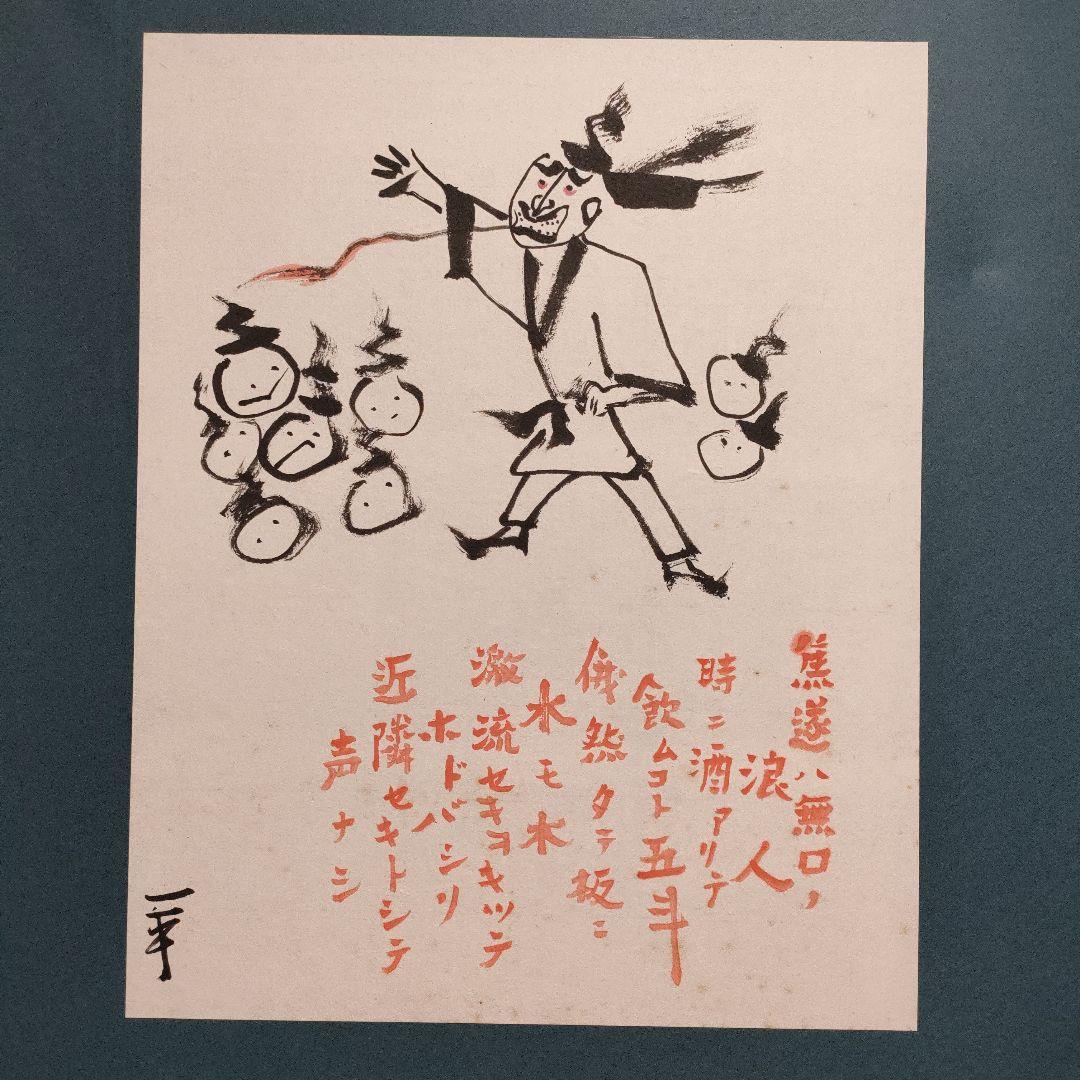 焦遂ハ無口ノ
浪人
時ニ酒アリテ
飲ムコト五斗
俄然タテ板ニ
水モ水
激流セキヲキツテ
ホドバシリ
近隣セキトシテ
声ナシ
一平